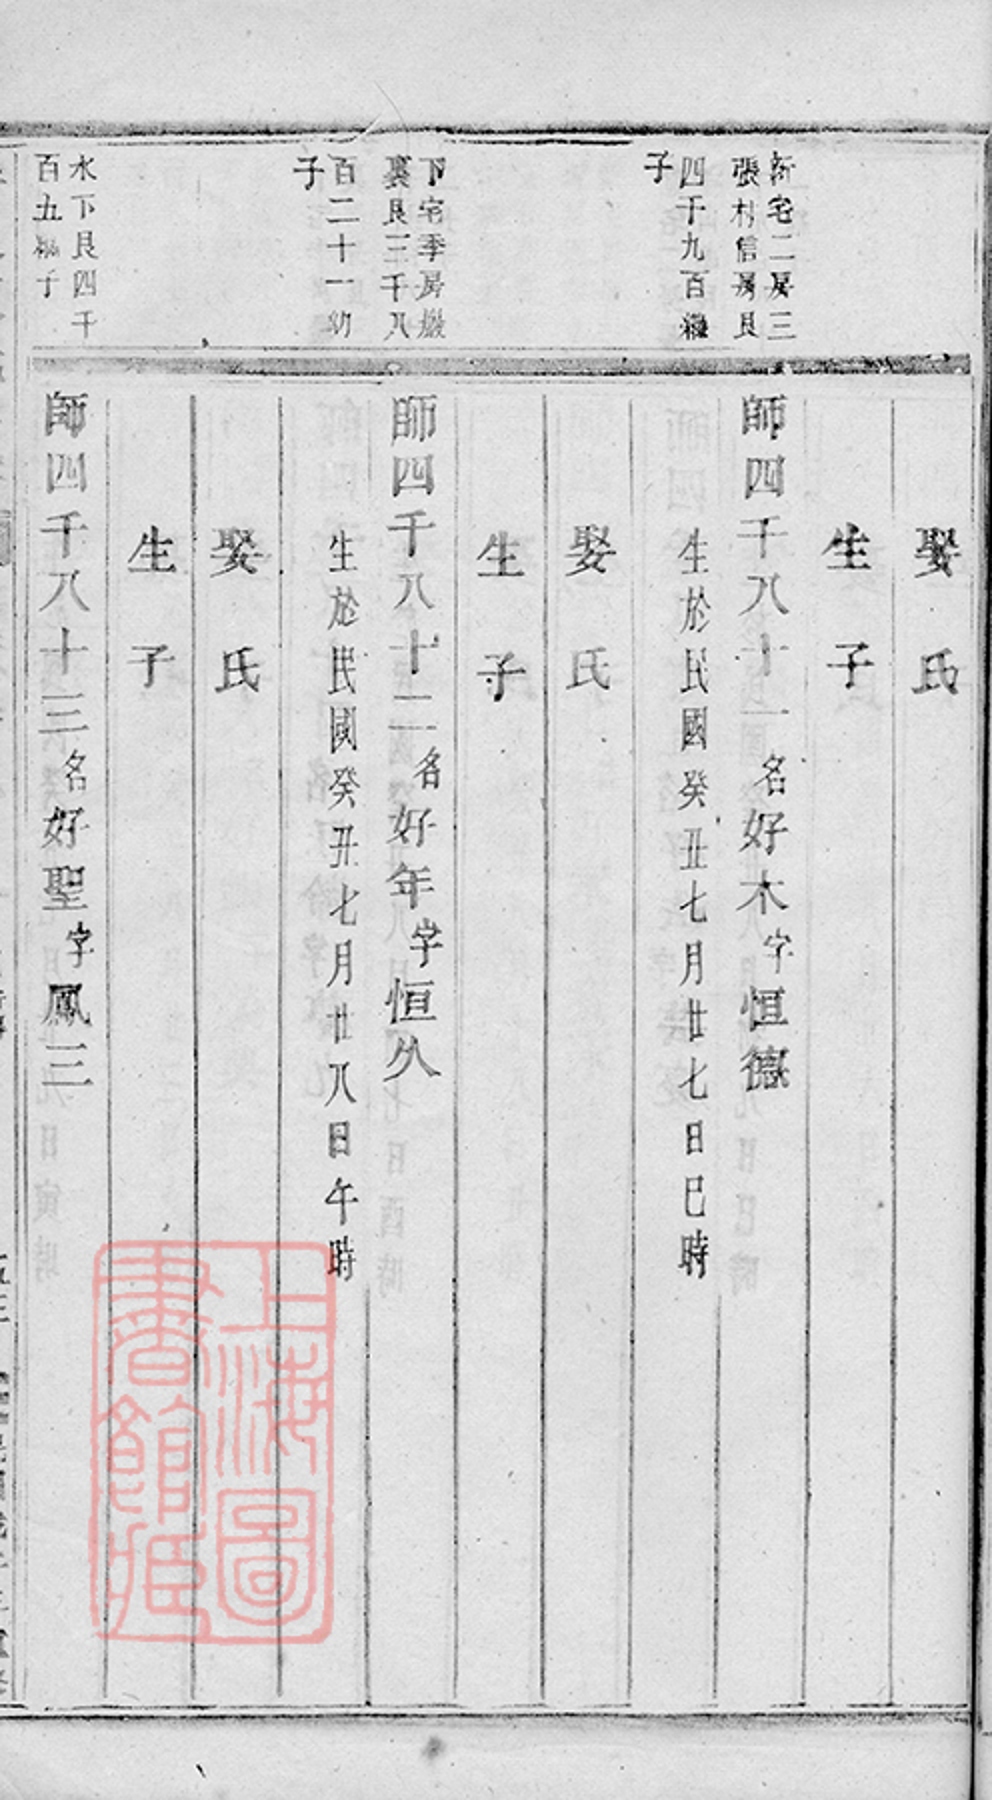 娶氏
生子
新宅二房三
張村信房良
四千九百繼
子
師四千八十一名好木字恒德
生於民國癸丑七月廿七日巳時
娶氏
生子
下宅季房巖
裏良三千八
百二十一幼
子
師四千八十二名好年字恒久
生於民國癸丑七月廿八日午時
娶氏
生子
水下良四千
百五繼子
師四千八十三名好聖字鳳三
上海圖書館藏